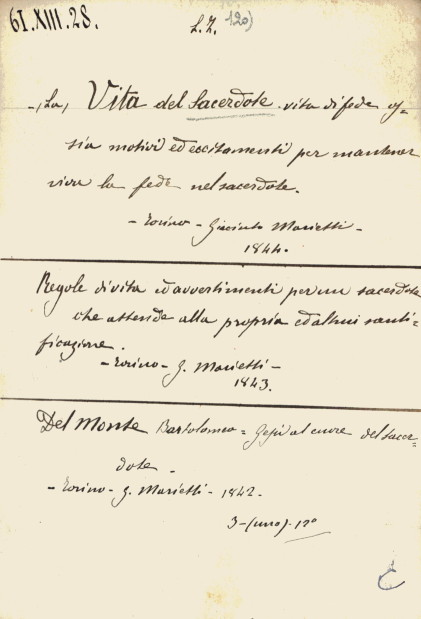 61.XIII.28.
L.Z. 120)
-(La) Vita del Sacerdote. vita di fede os-
sia motivi ed eccitamenti per mantener
viva la fede nel sacerdote.
- Torino - Giacinto Marietti -
1844.
Regole di vita ed avvertimenti per un sacerdote
che attende alla propria ed altrui santi=
ficazione.
- Torino - G. Marietti -
1843.
Del Monte Bartolomeo = Gesù al cuore del sacer-
dote -
- Torino - G. Marietti - 1842 -
3 - (uno) - 12°